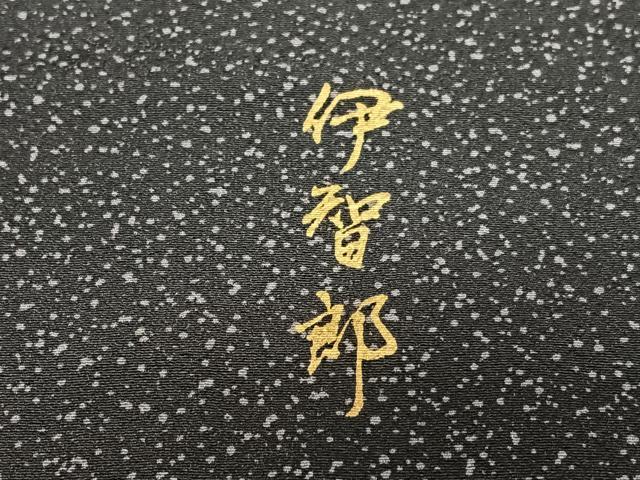 伊智郎